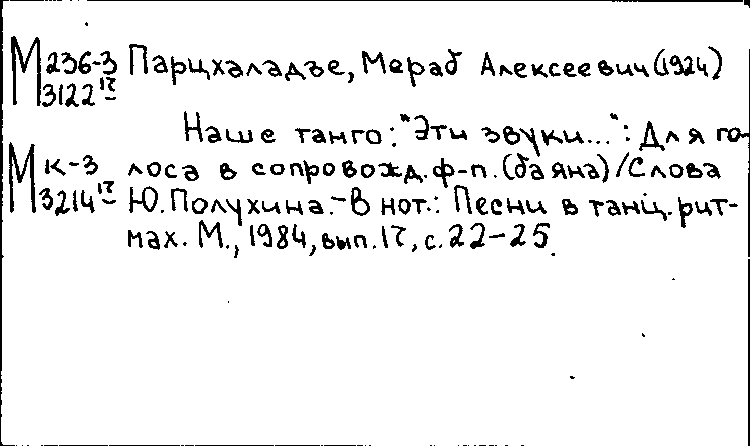 М 236-3 Парцхаладзе, Мераб Алексеевич (1924)
3122 17
Наше танго: "Эти звуки...": Для го-
М К-3 лоса в сопровожд. ф-п. (баяна)/Слова
3214 17 Ю. Полухина.- В нот.: Песни в танц. рит-
мах. М., 1984, вып. 17, с. 22-25.